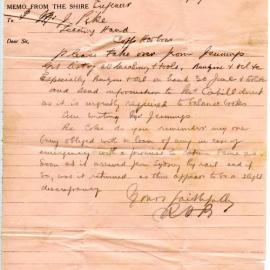 MEMO FROM THE SHIRE Engineer
TO Mr J. Pike
Leading Hand
Dear Sir, Coffs Harbour
Please take over from Jennings
all
Especially
and send information to Mr Cahill direct
as it is urgently required to balance books
Am writing Mr Jennings
Re Coke do you remember any one
being obliged with a loan of any in case of
emergency with a promise to return same as
soon as it arrived from Sydney by rail and if
so, was it returned as there appears to be a slight
discrepancy
Yours faithfully